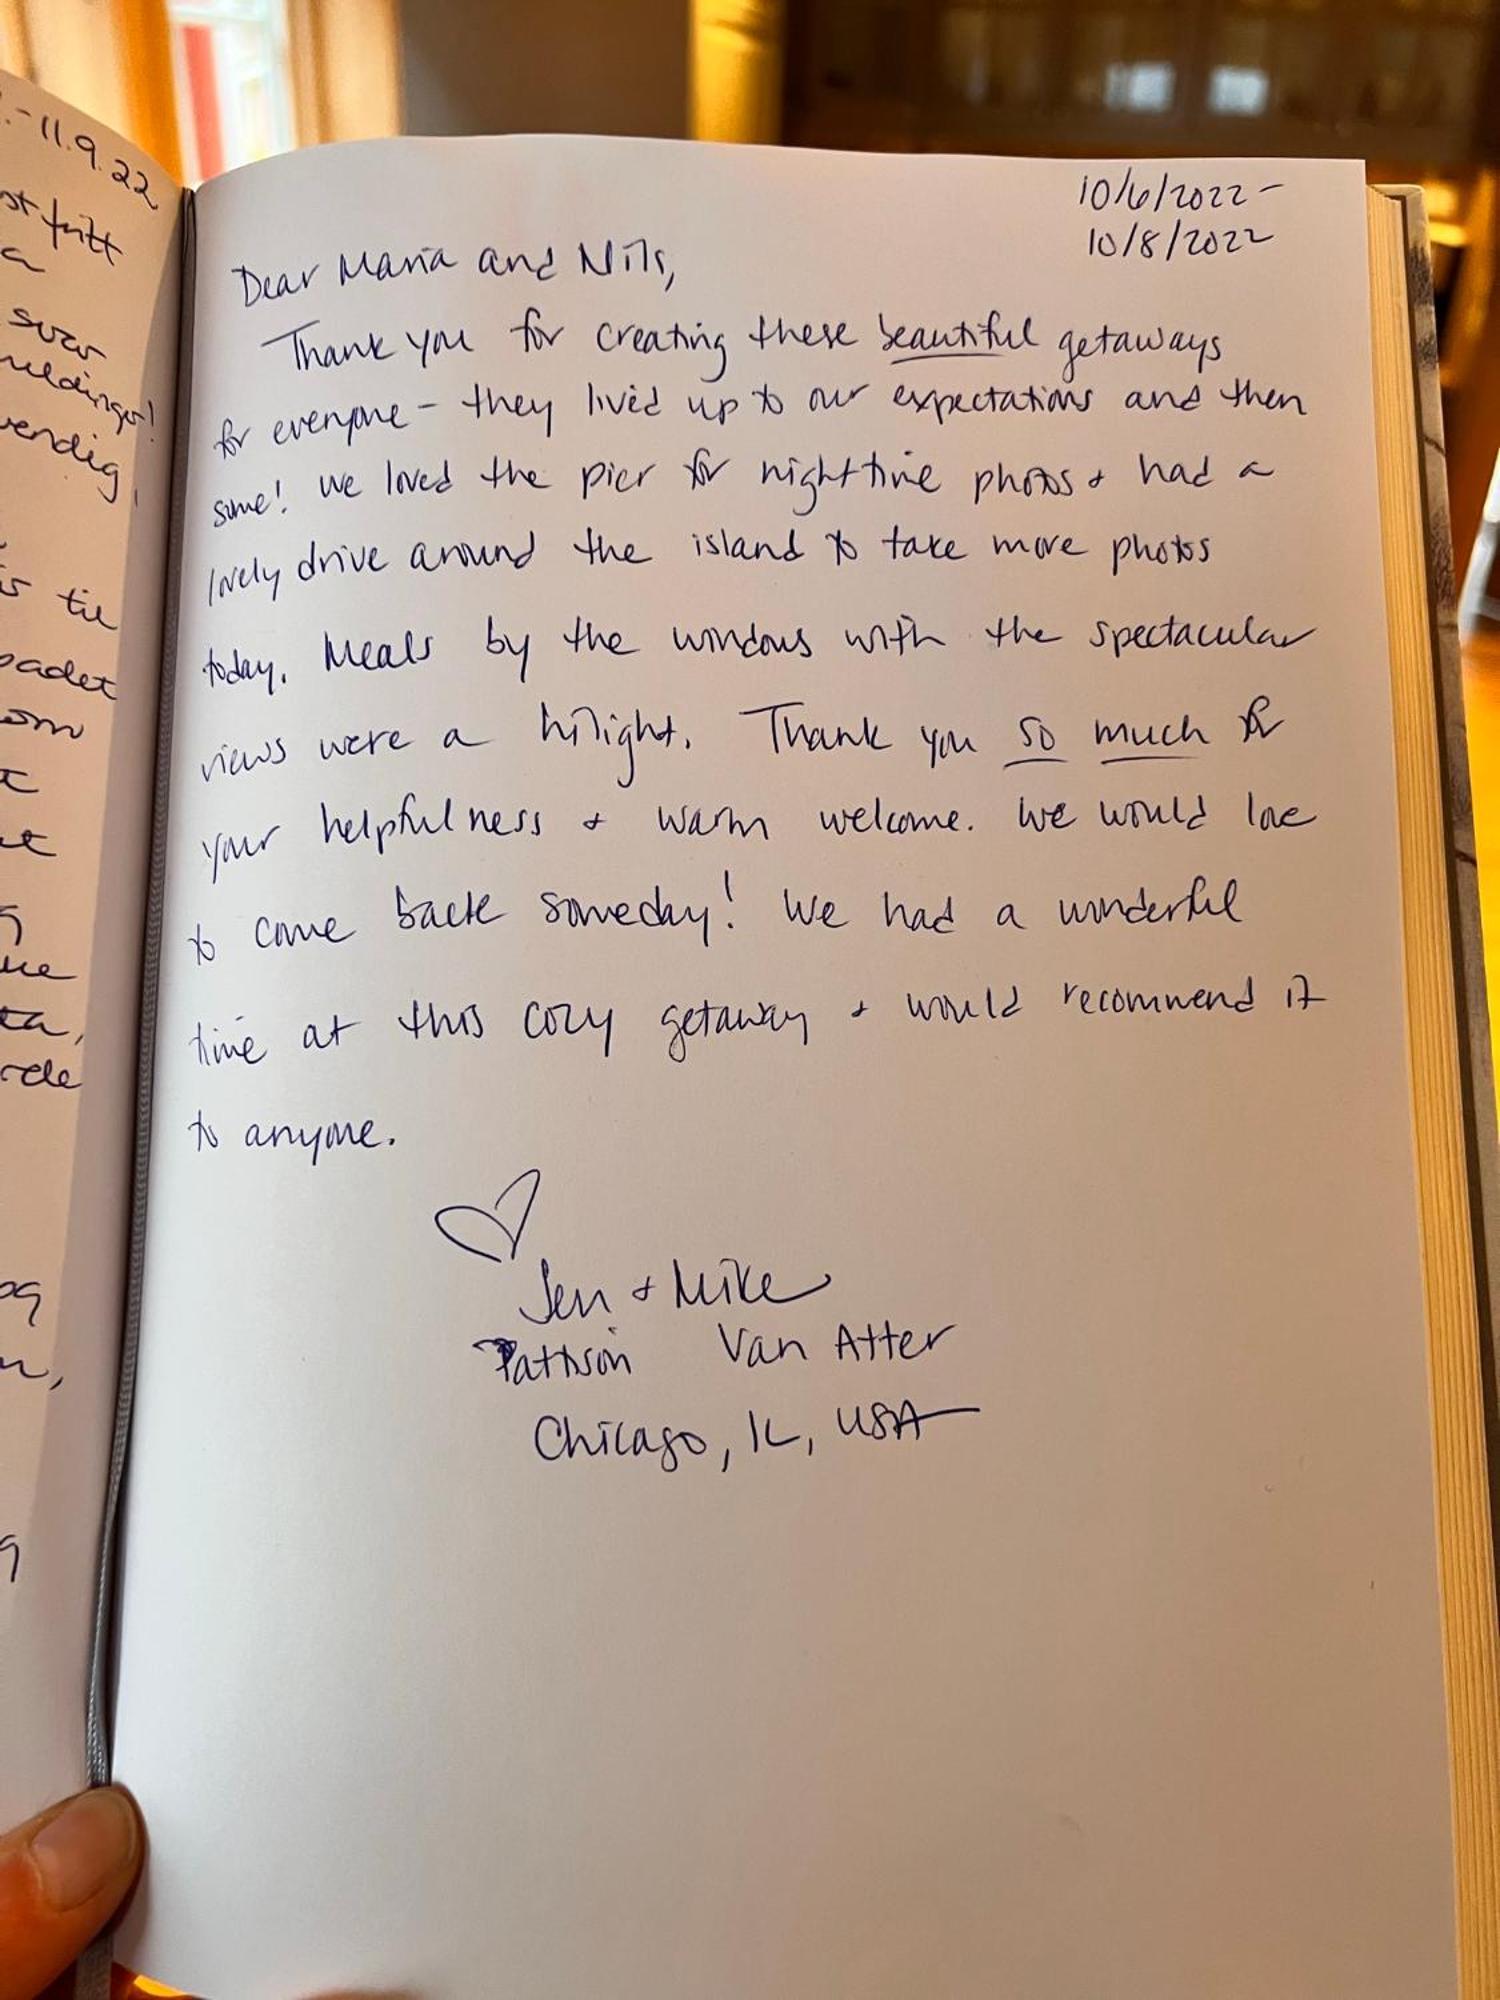 -11.9.22
fritt
a
svar
vendig,
til
om
10/6/2022-
10/8/2022
Dear Maria and Nils,
Thank you for creating these beautiful getaways
for everyone - they lived up to our expectations and then
some! We loved the pier for nighttime photos + had a
lovely drive around the island to take more photos
today. Meals by the windows with the spectacular
views were a hilight. Thank you so much for
your helpfulness + warm welcome. We would love
to come back someday! We had a wonderful
time at this cozy getaway + would recommend it
to anyone.
Jen + Mike
Pattison Van Atter
Chicago, IL, USA